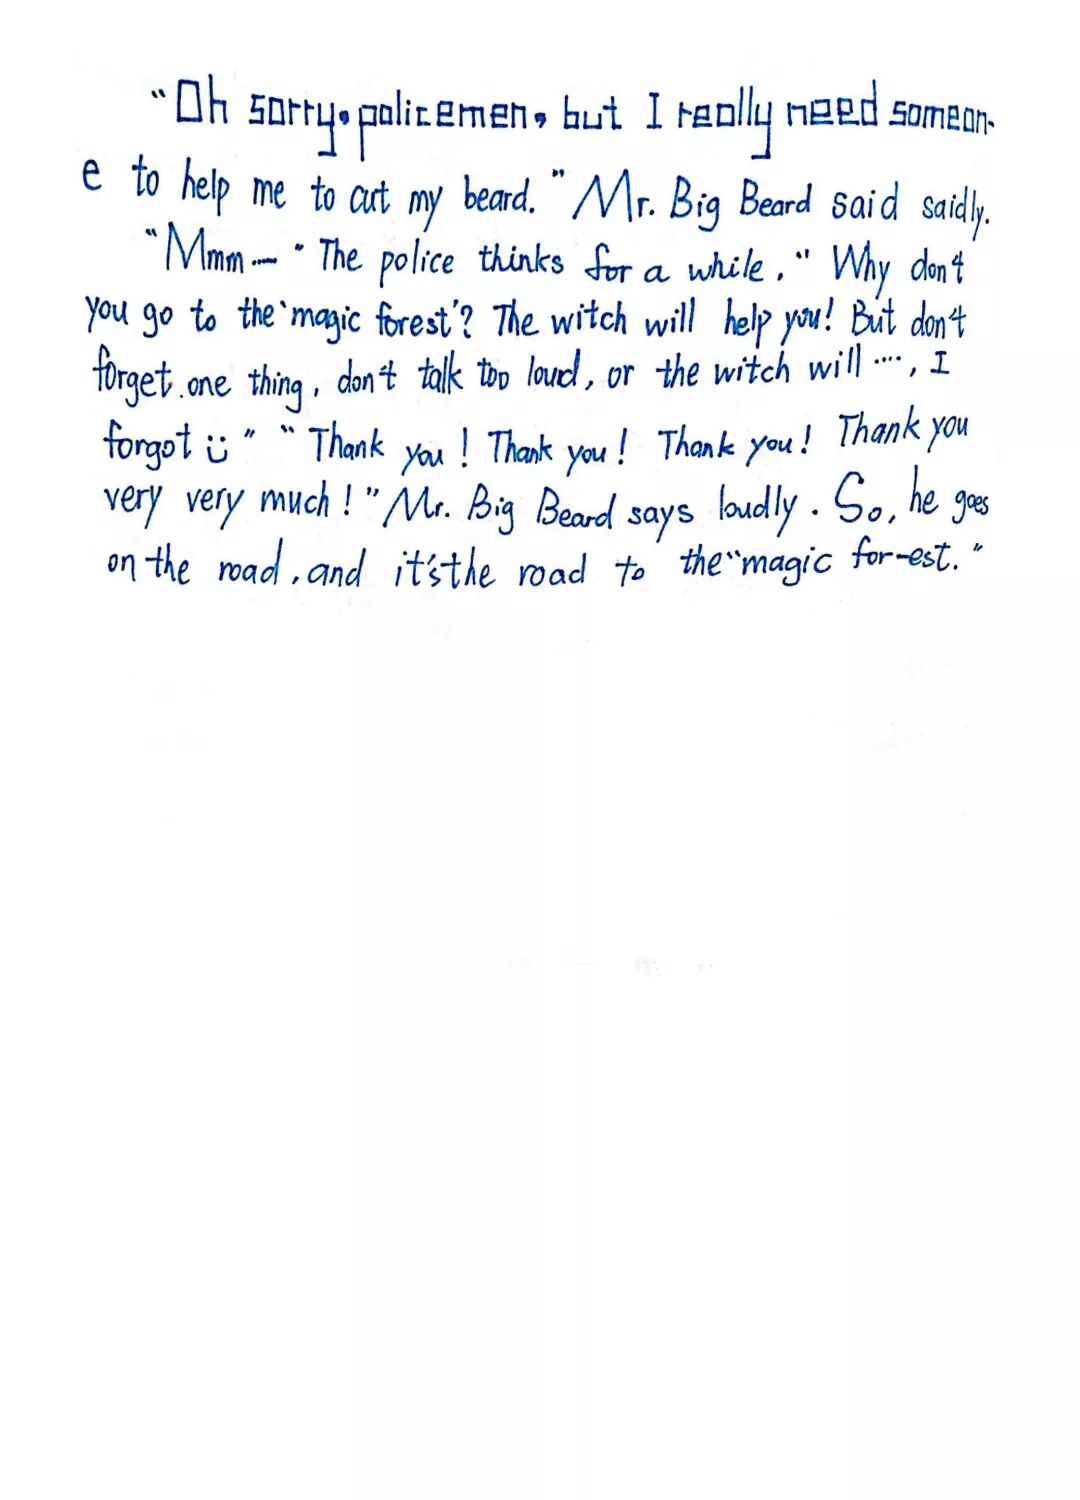 "Oh sorry, policemen, but I really need someon-
e to help me to cut my beard." Mr. Big Beard said saidly.
"Mmm...." The police thinks for a while. "Why don't
you go to the 'magic forest'? The witch will help you! But don't
forget one thing, don't talk too loud, or the witch will ...., I
forgot ü" "Thank you! Thank you! Thank you! Thank you
very very much!" Mr. Big Beard says loudly. So, he goes
on the road, and it's the road to the "magic for-est."